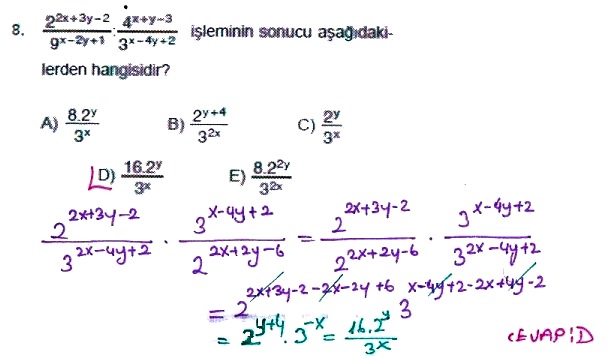 8. 2^{2x+3y-2}/9^{x-2y+1} : 4^{x+y-3}/3^{x-4y+2} işleminin sonucu aşağıdaki-
lerden hangisidir?
A) 8.2^y/3^x B) 2^{y+4}/3^{2x} C) 2^y/3^x
D) 16.2^y/3^x E) 8.2^{2y}/3^{2x}
2^{2x+3y-2}/3^{2x-4y+2} · 3^{x-4y+2}/2^{2x+2y-6} = 2^{2x+3y-2}/2^{2x+2y-6} · 3^{x-4y+2}/3^{2x-4y+2}
= 2^{2x+3y-2-2x-2y+6} 3^{x-4y+2-2x+4y-2}
= 2^{y+4} · 3^{-x} = 16.2^y/3^x
CEVAP D